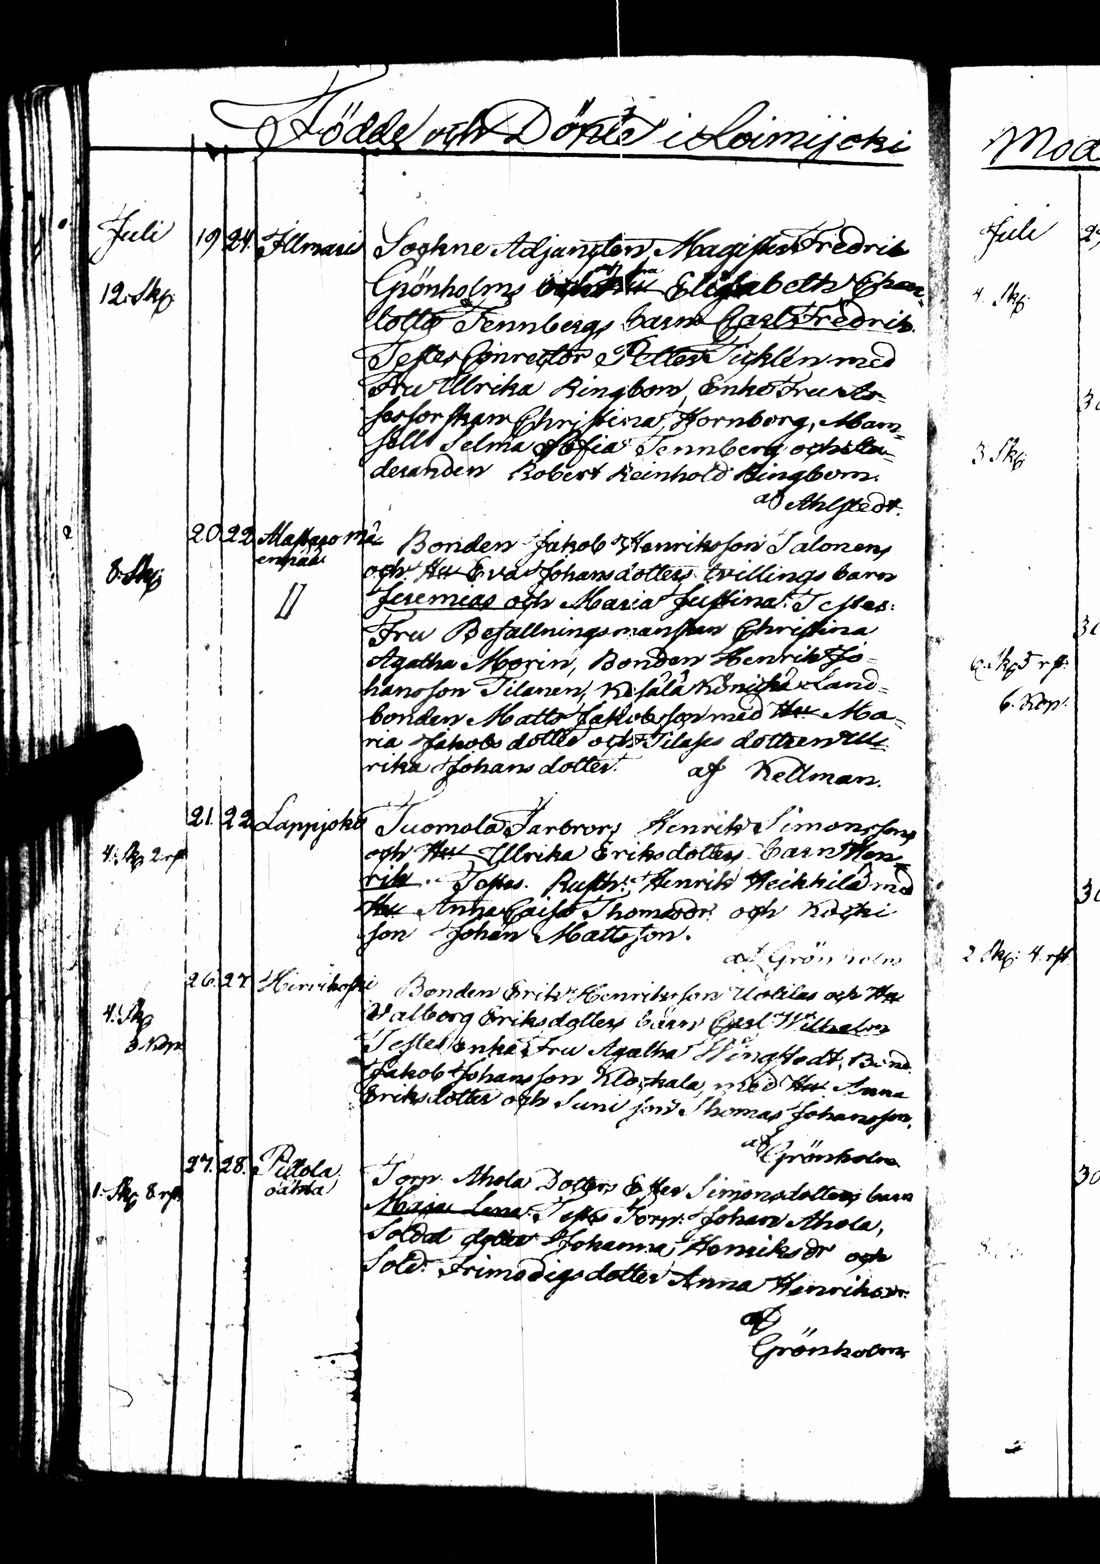 Födde och Döpte i Loimijoki
Juli 19 24 Illmari Sockne Adjuncten, Magister Fredrik
12. Skp. Grönholms Elisabeth Char=
lotta Tennbergs barn Carl Fredrik.
Testes Conrector Petter Ticklén med
Fru Ullrika Ringbom, Enke Fru As=
sessorskan Christina Hornborg, Mam=
sell Selma Sofia Tennberg och Stu=
deranden Robert Reinhold Ringbom.
af Ahlstedt.
20 22 Bonden Jakob Henriksson Salonens
8. Skp. och Hu Eva Johansdotters tvillings barn
Jeremias och Maria Justina. Testes:
Fru Befallningsmanskan Christina
Agatha Morin, Bonden Henrik Jo=
hansson Tilanen, Land=
bonden Matts Jakobsson med Hu Ma=
ria Jakobsdotter och dottren Ull=
rika Johansdotter. af Kellman.
21. 22 Lappjoki Tuomola Farbrors Henrik Simonssons
4. Skp 2 rst och Hu Ullrika Eriksdotters barn Hen=
rik. Testes. Rusth. Henrik Heikkilä med
Hu Anna Caisa Thomasdr. och
son Johan Mattsson.
af Grönholm
26. 27. Hirvikoski Bonden Erik Henriksson Uotilas och Hu
4. Skp Valborg Eriksdotters barn Carl Wilhelm
8. Kop. Testes enke Fru Agatha Wingstedt, Bond.
Jakob Johansson Klockala, med Hu Anna
Eriksdotter och Thomas Johansson.
af Grönholm
27. 28. Torp. Ahola Dotters Ester Simonsdotters barn
1. Skp 8 rst Maja Lena. Testes Torp. Johan Ahola,
Soldat dotter Johanna Henriksdr och
Sold. Frimodigs dotter Anna Henriksdr.
af
Grönholm
Juli
4. Skp.
3 Skp.
6. Skp 5 rst.
6. Kop.
2 Skp. 4. rst.